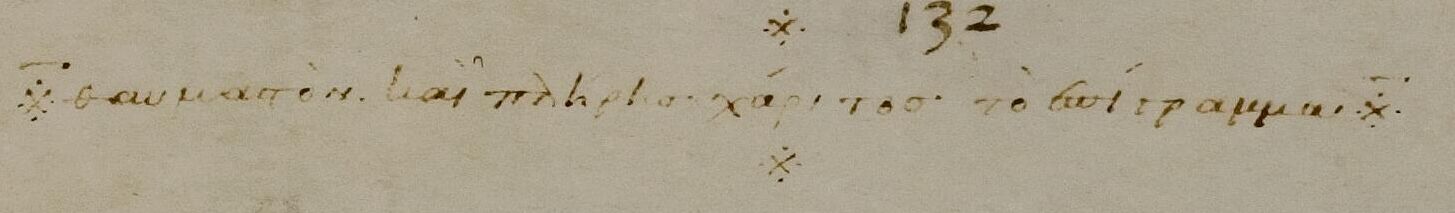 132
※ θαυμαστὸν. καὶ πλήρησ χάριτοσ· τὸ ἐπίγραμμα· ※